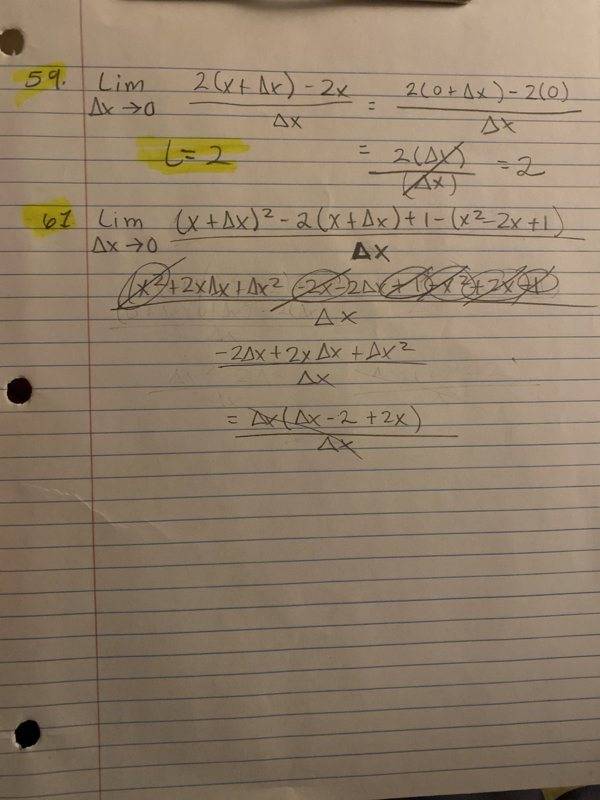 59. Lim Δx→0 2(x+Δx)-2x / Δx = 2(0+Δx)-2(0) / Δx
L=2 = 2(Δx) / (Δx) = 2
61 Lim Δx→0 (x+Δx)²-2(x+Δx)+1-(x²-2x+1) / Δx
(x²+2xΔx+Δx²-2x-2Δx+1-x²+2x-1 / Δx
-2Δx+2xΔx+Δx² / Δx
= Δx(Δx-2+2x) / Δx